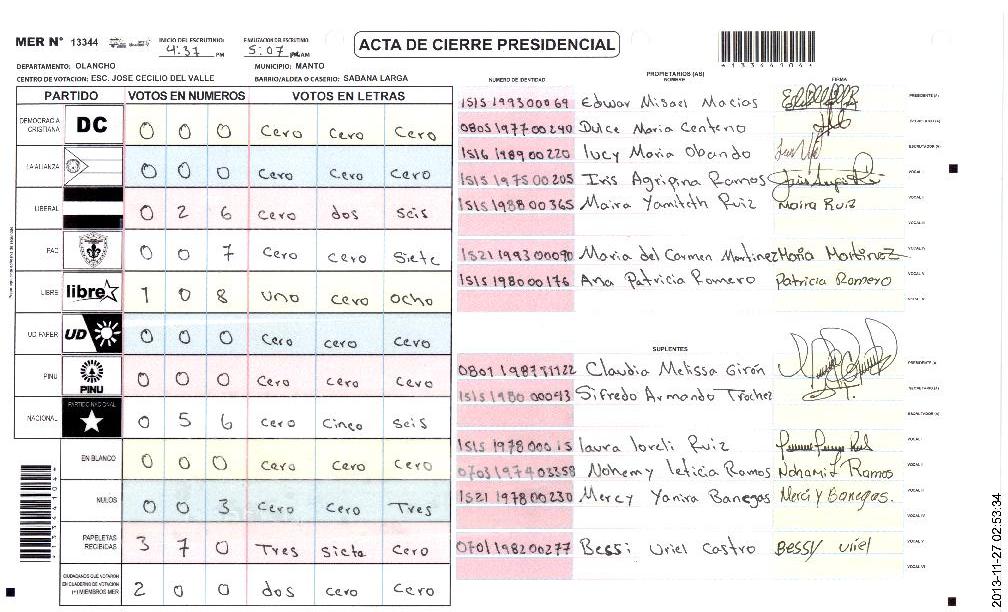 MER N° 13344 INICIO DEL ESCRUTINIO: 4:37 PM FINALIZACION DEL ESCRUTINIO: 5:07 PM AM ACTA DE CIERRE PRESIDENCIAL
DEPARTAMENTO: OLANCHO MUNICIPIO: MANTO
CENTRO DE VOTACION: ESC. JOSE CECILIO DEL VALLE BARRIO/ALDEA O CASERIO: SABANA LARGA
PARTIDO VOTOS EN NUMEROS VOTOS EN LETRAS
DEMOCRACIA CRISTIANA DC 0 0 0 Cero Cero Cero
LA ALIANZA 0 0 0 Cero Cero Cero
LIBERAL 0 2 6 cero dos seis
PAC 0 0 7 Cero cero Siete
LIBRE libre 1 0 8 uno cero ocho
UD FAPER UD 0 0 0 Cero cero Cero
PINU PINU 0 0 0 Cero Cero Cero
NACIONAL PARTIDO NACIONAL 0 5 6 cero Cinco seis
EN BLANCO 0 0 0 cero Cero Cero
NULOS 0 0 3 Cero Cero Tres
PAPELETAS RECIBIDAS 3 7 0 Tres siete Cero
CIUDADANOS QUE VOTARON EN CUADERNO DE VOTACION (+) MIEMBROS MER 2 0 0 dos cero Cero
PROPIETARIOS (AS)
NUMERO DE IDENTIDAD NOMBRE FIRMA
1515 1993 00069 Edwar Misael Macias PRESIDENTE (A)
0805 1977 00240 Dulce Maria Centeno
1516 1989 00220 Lucy Maria Obando ESCRUTADOR (A)
1515 1975 00205 Iris Agripina Ramos VOCAL I
1515 1988 00365 Maira Yamileth Ruiz Maira Ruiz VOCAL II
VOCAL III
1521 1993 00090 Maria del Carmen Martinez Maria Martinez VOCAL IV
1515 1980 00176 Ana Patricia Romero Patricia Romero VOCAL V
SUPLENTES
Claudia Melissa Girón PRESIDENTE (A)
1515 1980 00093 Sifredo Armando Trochez SECRETARIO (A)
ESCRUTADOR (A)
Laura Loreli Ruiz VOCAL I
0703 1974 03358 Nohemy Leticia Ramos Nohami L Ramos
1521 1978 00230 Mercy Yanira Banegas Merci y Banegas.
VOCAL IV
0701 1982 00277 Bessi Uriel Castro Bessy uriel VOCAL V
VOCAL VI
2013-11-27 02:53:34